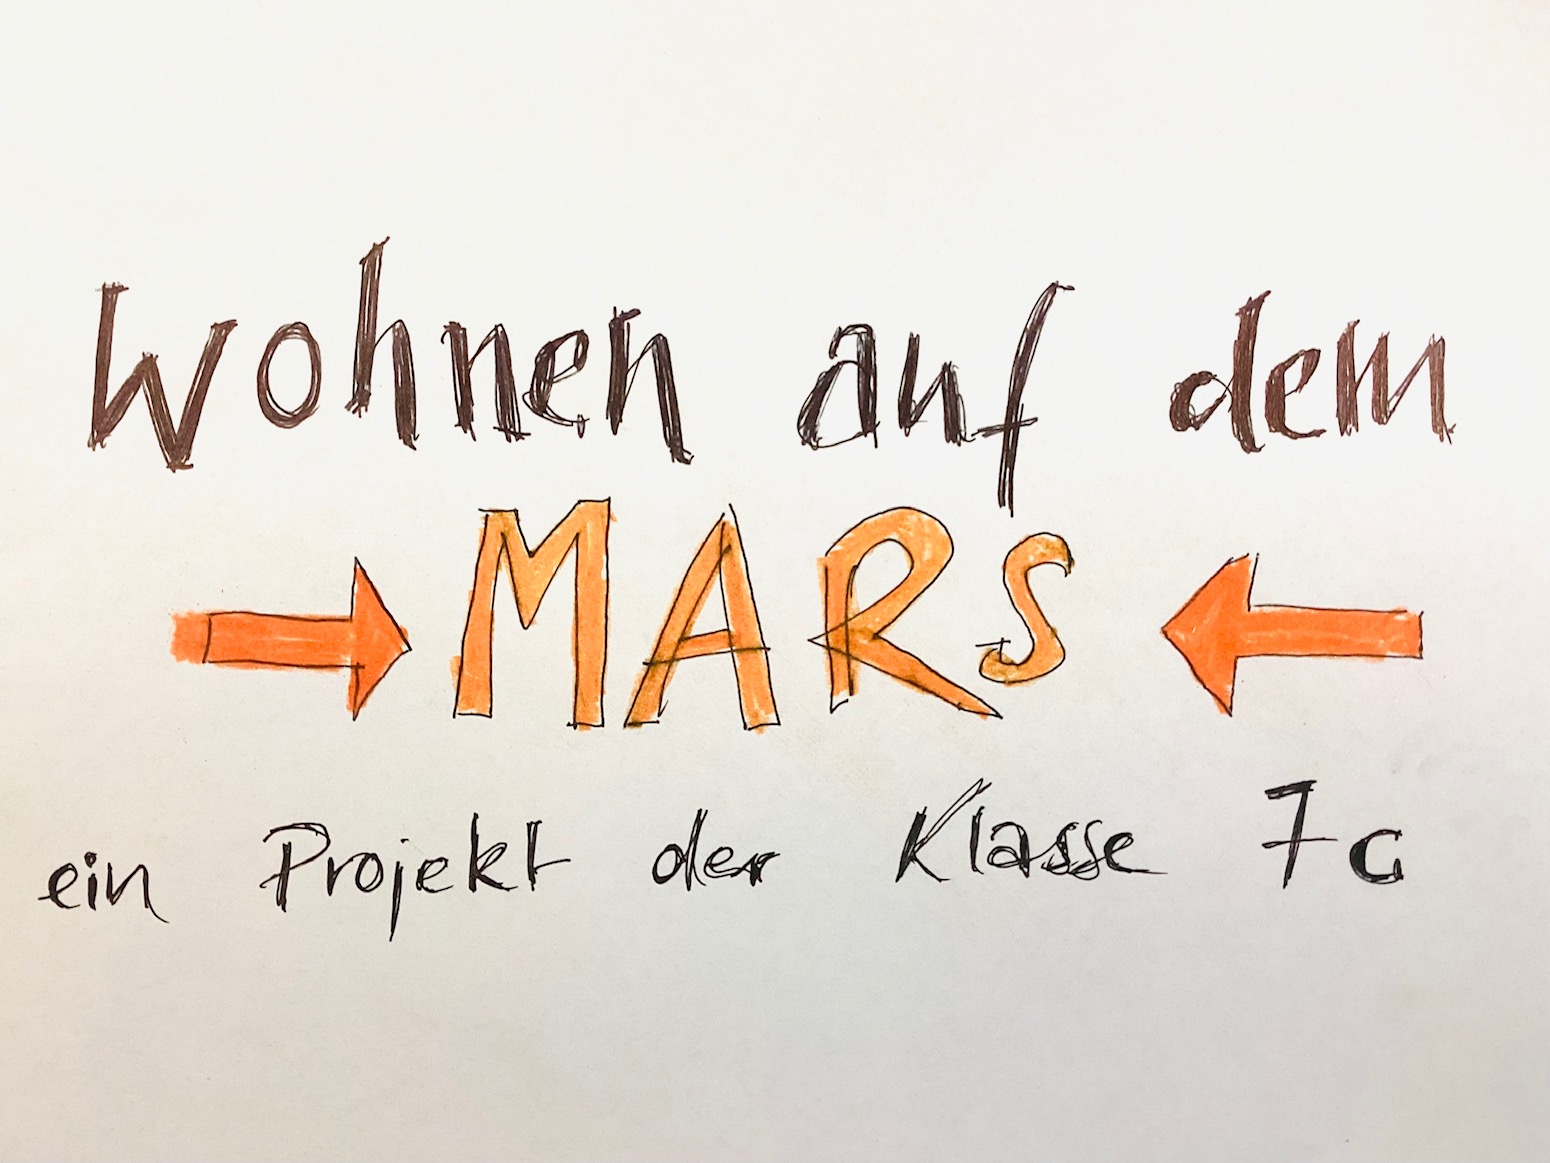 Wohnen auf dem
MARS
ein Projekt der Klasse 7c